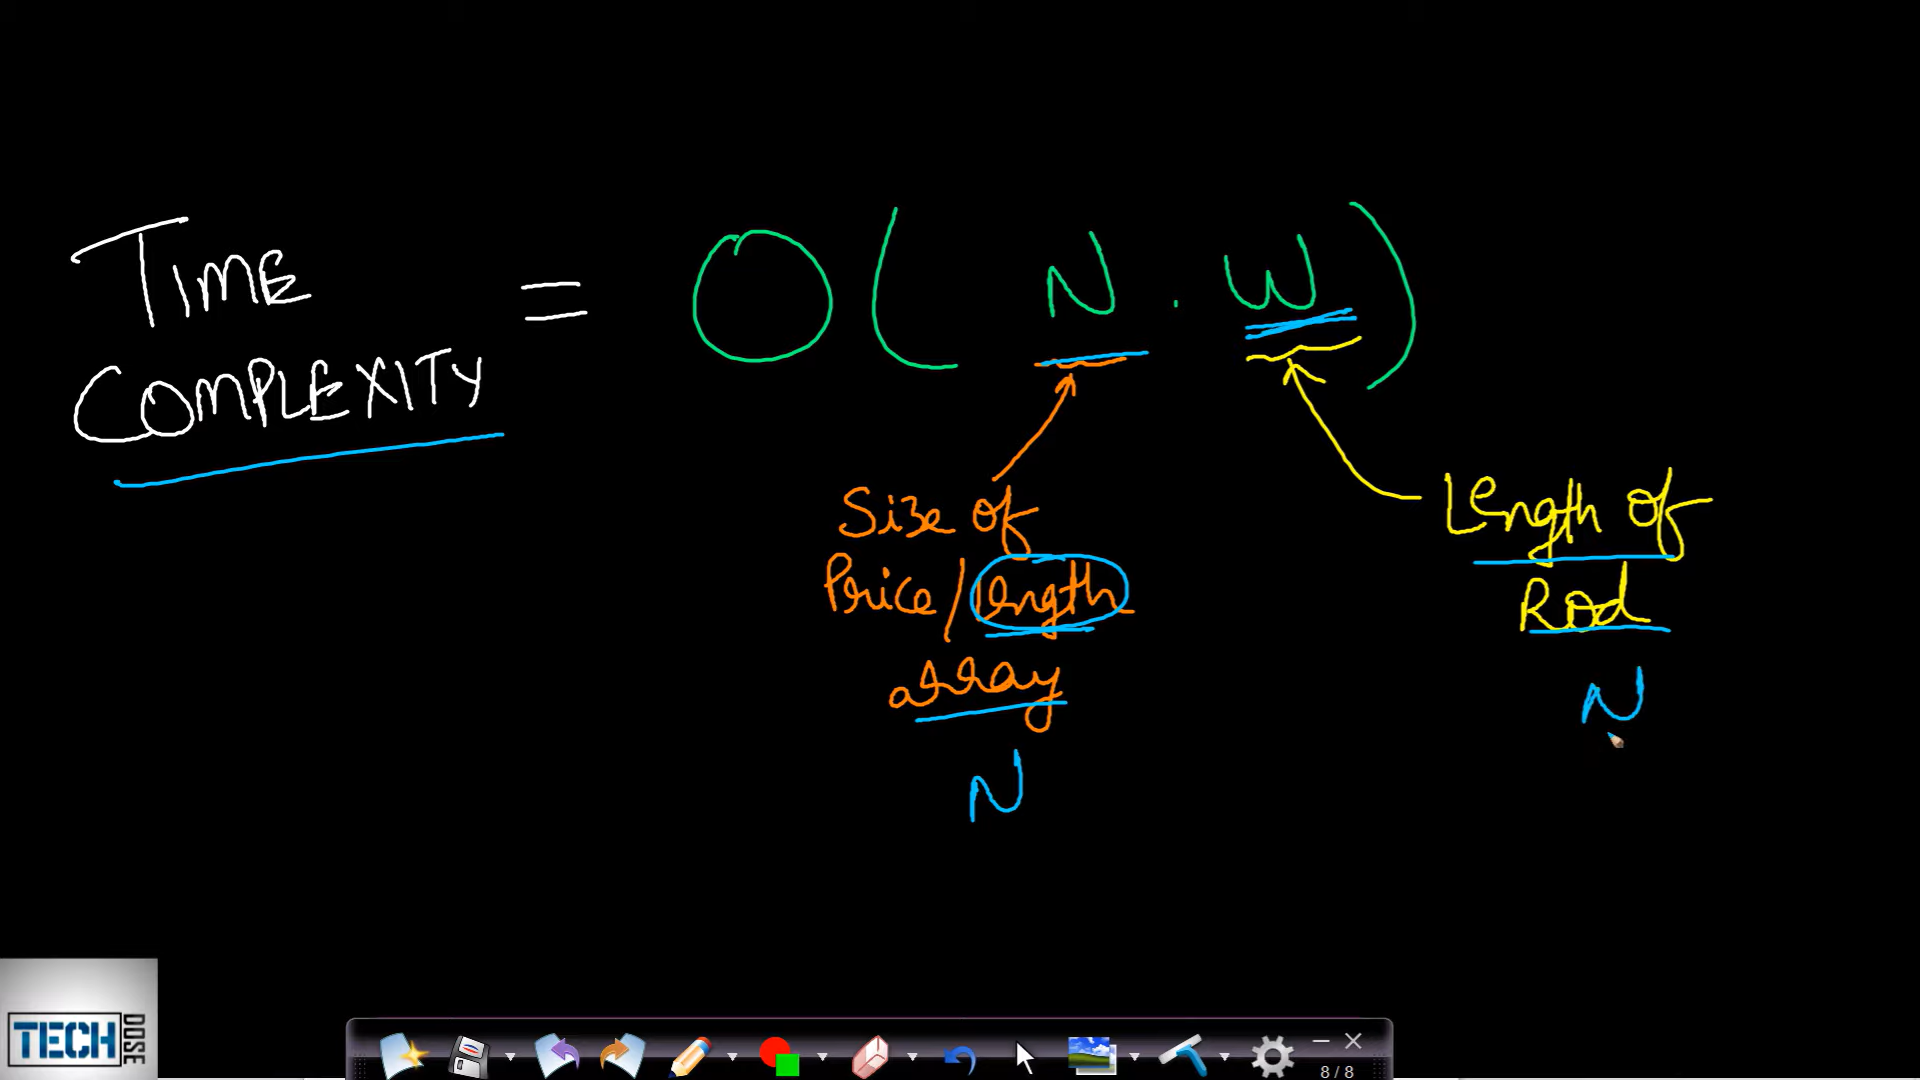 TIME
COMPLEXITY
= O( N . W )
Size of
Price/length
array
N
Length of
Rod
N
TECH DOSE
8 / 8